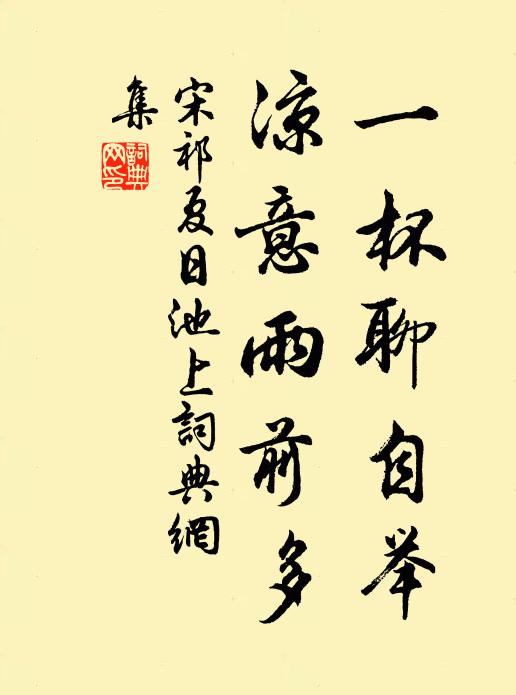 一杯聊自举
凉意雨前多
宋祁夏日池上詞典網
集
詞典
网印